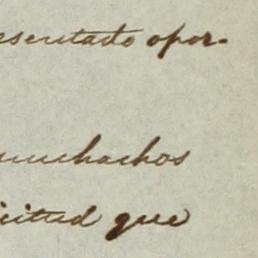 esentado opor-
muchachos
icitud que